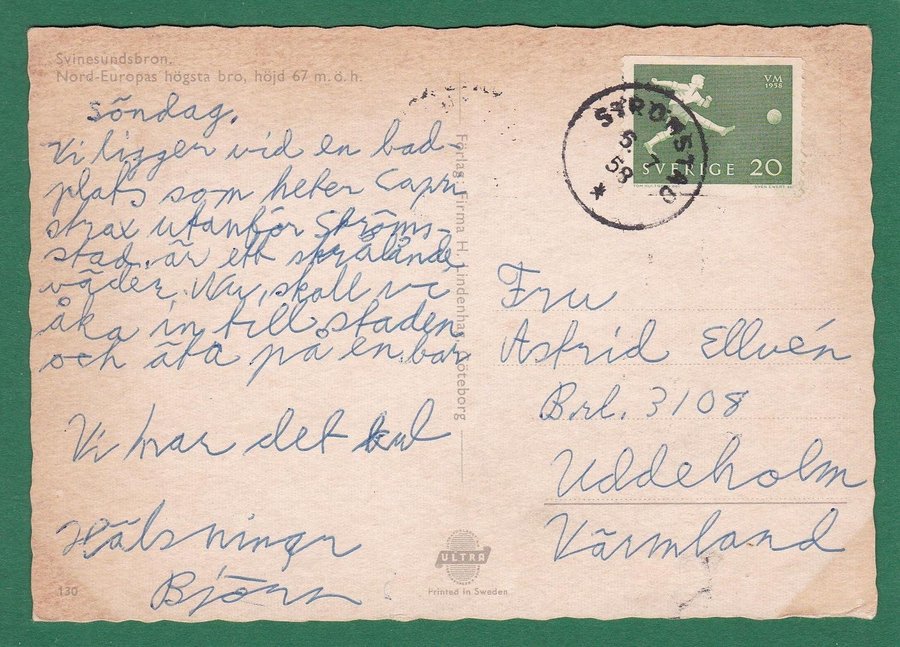 Svinesundsbron.
Nord-Europas högsta bro, höjd 67 m. ö. h.
söndag.
Vi ligger vid en bad-
plats som heter Capri
strax utanför Ströms-
stad. är ett strålande
väder. Nu, skall vi
åka in till staden
och äta på en bar
Vi har det kul
Hälsningar
Björn
130
Förlag: Firma H. Lindenhag, Göteborg
ULTRA
Printed in Sweden
VM
1958
SVERIGE 20
SVEN EWERT SC
STRÖMSTAD
6.7
58
*
Fru
Astrid Ellvén
Brl. 3108
Uddeholm
Värmland